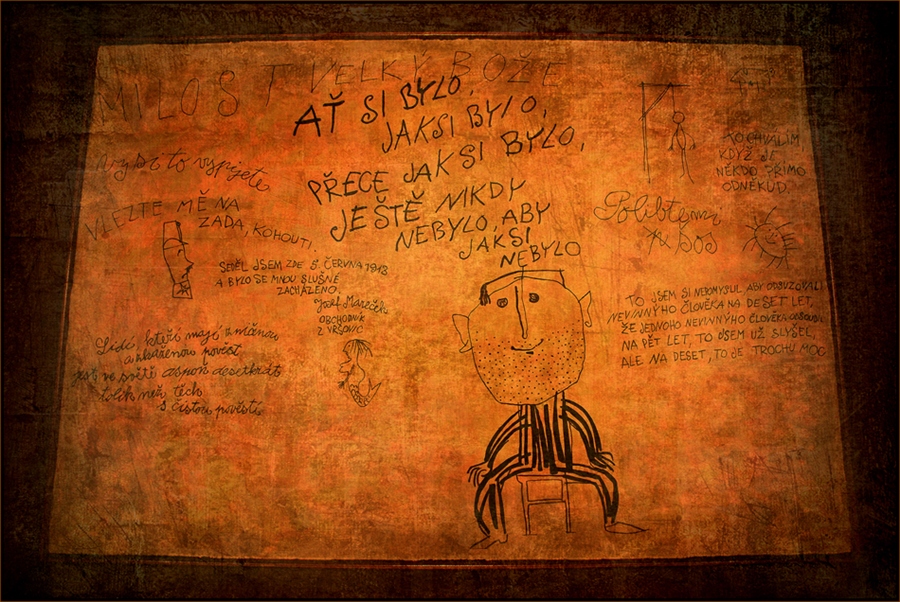 MILOST VELKÝ BOŽE
AŤ SI BYLO,
JAKSI BYLO,
PŘECE JAKSI BYLO,
JEŠTĚ NIKDY
NEBYLO, ABY
JAKSI
NEBYLO
to vypijete
VLEZTE MĚ NA
ZADA, KOHOUTI.
SEDĚL JSEM ZDE 5. ČERVNA 1913
A BYLO SE MNOU SLUŠNĚ
ZACHÁZENO.
Josef Mareček
OBCHODNÍK
Z VRŠOVIC
Lidí, kteří mají
a zkaženou pověst
jest ve světě aspoň desetkrát
tolik než těch
s čistou pověstí
CHVÁLÍM,
KDYŽ JE
NĚKDO PŘÍMO
ODNĚKUD.
Polibte mi
bos
TO JSEM SI NEPOMYSLIL ABY ODSUZOVALI
NEVINNÝHO ČLOVĚKA NA DESET LET,
ŽE JEDNOHO NEVINNÝHO ČLOVĚKA
NA PĚT LET, TO JSEM UŽ SLYŠEL,
ALE NA DESET, TO JE TROCHU MOC